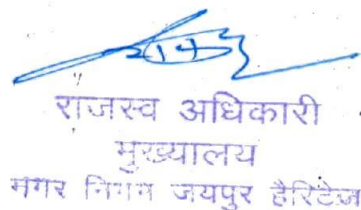 राजस्व अधिकारी
मुख्यालय
नगर निगम जयपुर हैरिटेज